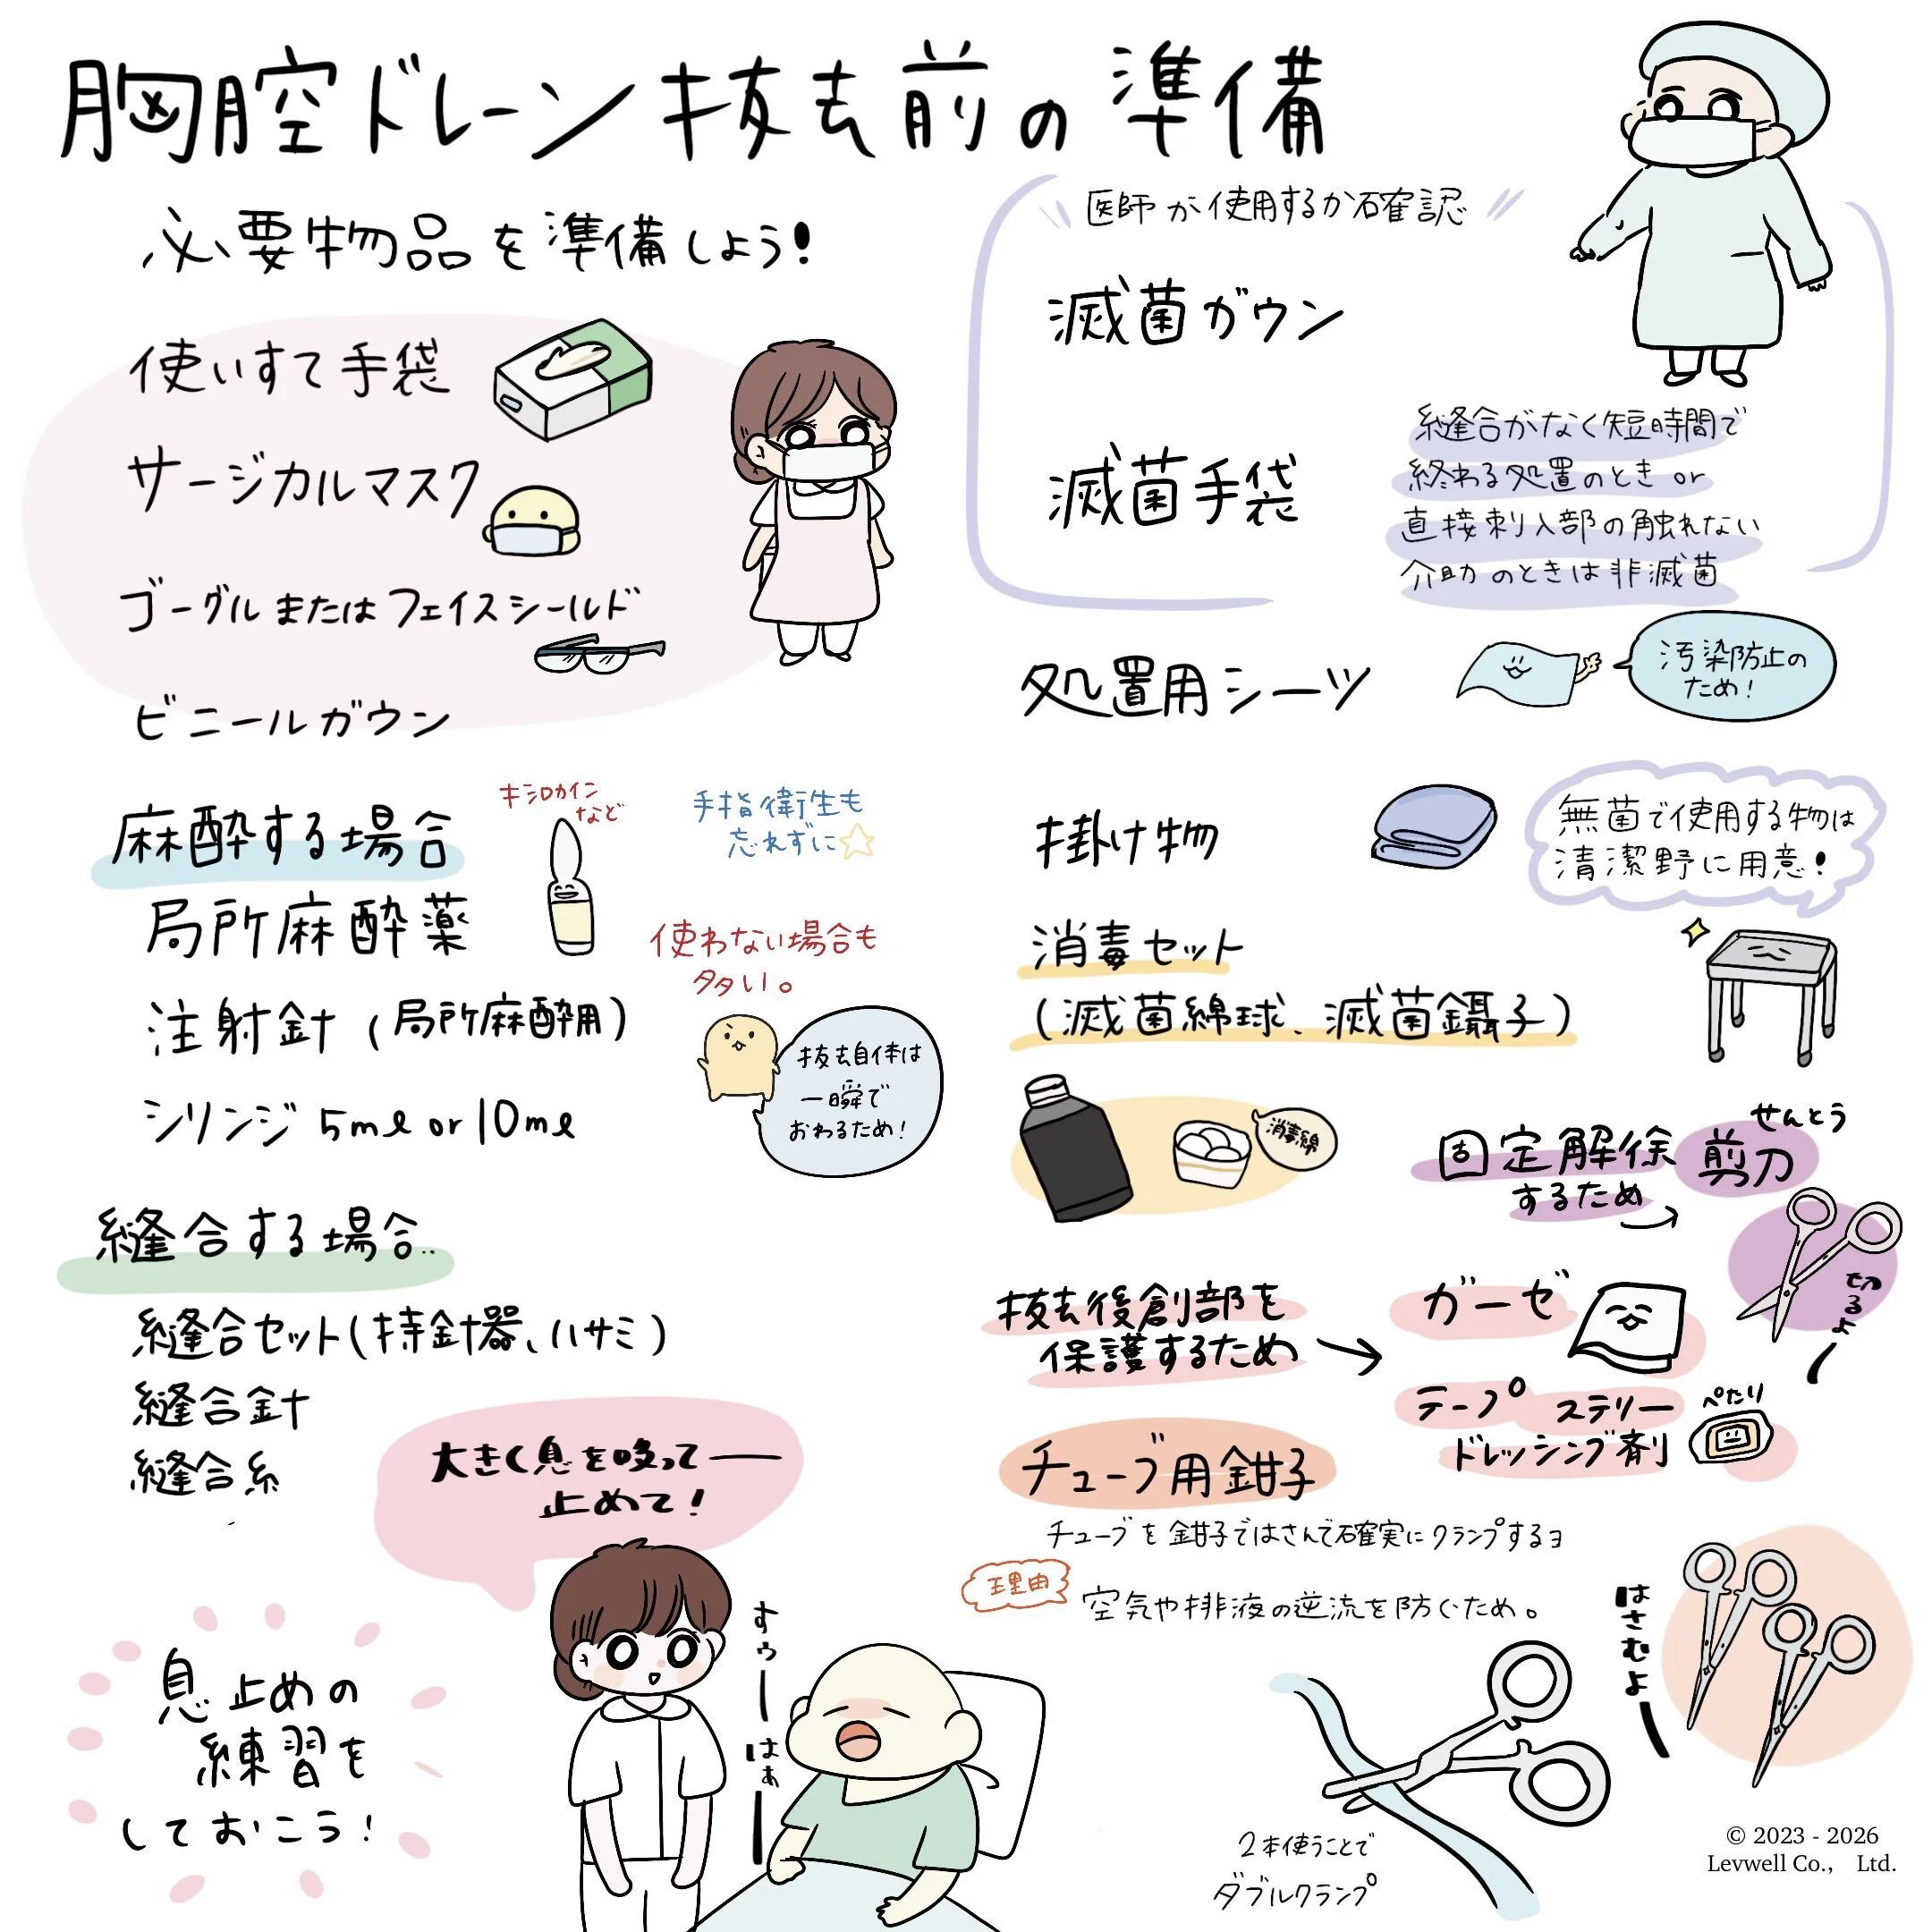 胸腔ドレーン抜去前の準備
必要物品を準備しよう!
使いすて手袋
サージカルマスク
ゴーグルまたはフェイスシールド
ビニールガウン
医師が使用するか確認
滅菌ガウン
滅菌手袋
縫合がなく短時間で
終わる処置のとき or
直接刺入部の触れない
介助のときは非滅菌
処置用シーツ
汚染防止の
ため!
麻酔する場合
キシロカイン
など
手指衛生も
忘れずに
局所麻酔薬
注射針(局所麻酔用)
シリンジ 5ml or 10ml
使わない場合も
多い。
抜去自体は
一瞬で
おわるため!
掛け物
無菌で使用する物は
清潔野に用意!
消毒セット
(滅菌綿球、滅菌鑷子)
消毒綿
せんとう
固定解除 剪刀
するため
切るよー
縫合する場合..
縫合セット(持針器、ハサミ)
縫合針
縫合糸
抜去後創部を
保護するため
ガーゼ
テープ ステリー
ドレッシング剤
ぺたり
チューブ用鉗子
チューブを鉗子ではさんで確実にクランプするヨ
理由
空気や排液の逆流を防ぐため。
はさむよー
2本使うことで
ダブルクランプ
大きく息を吸って——
止めて!
すぅーはぁー
息止めの
練習を
しておこう!
© 2023 - 2026
Levwell Co., Ltd.